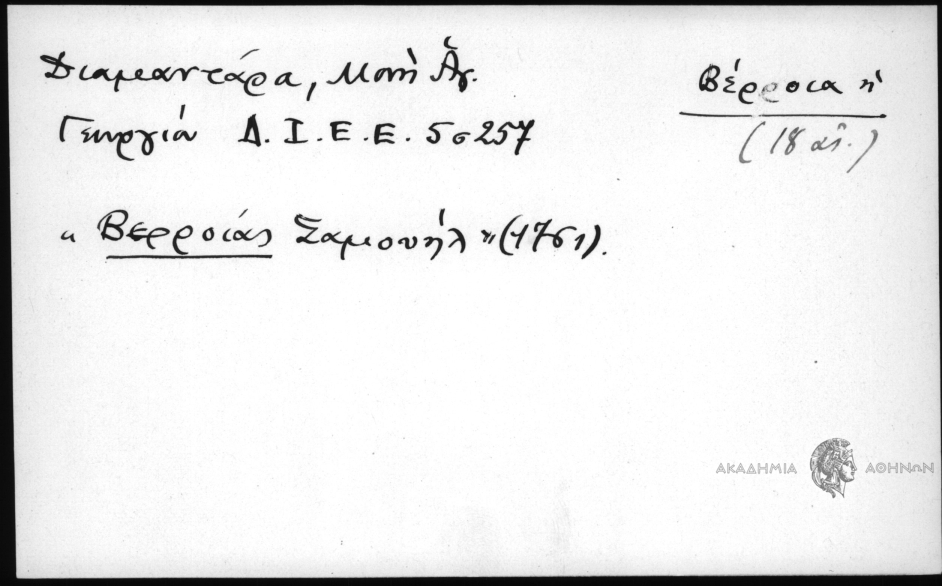 Διαμαντάρα, Μονὴ Ἁγ.
Γεωργίου Δ.Ι.Ε.Ε. 5σ257
Βέρροια ἡ
(18 αἰ.)
"Βερροίας Σαμουὴλ" (1761).
ΑΚΑΔΗΜΙΑ ΑΘΗΝΩΝ